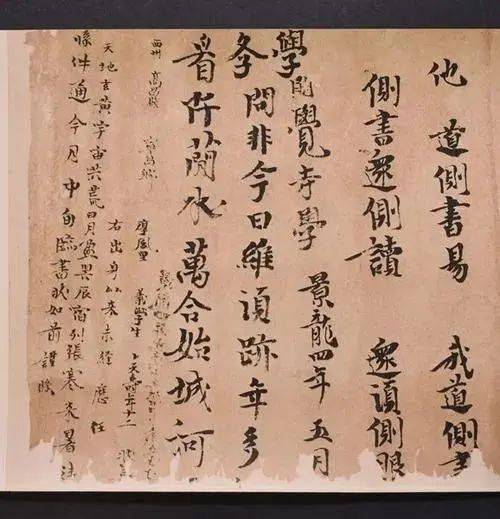 他道側書易 我道側書
側書還側讀 還須側眼
學開覺寺學 景龍四年五月
學問非今日維須跡年多
看阡簡水萬合始城河
西州 高昌縣 寧昌鄉 厚風里 義學生 卜天壽年十二
右出身以來未經歷任
天地玄黃宇宙洪荒日月盈昃辰宿列張寒來暑
牒件通今月 日 臨書牒如前謹牒